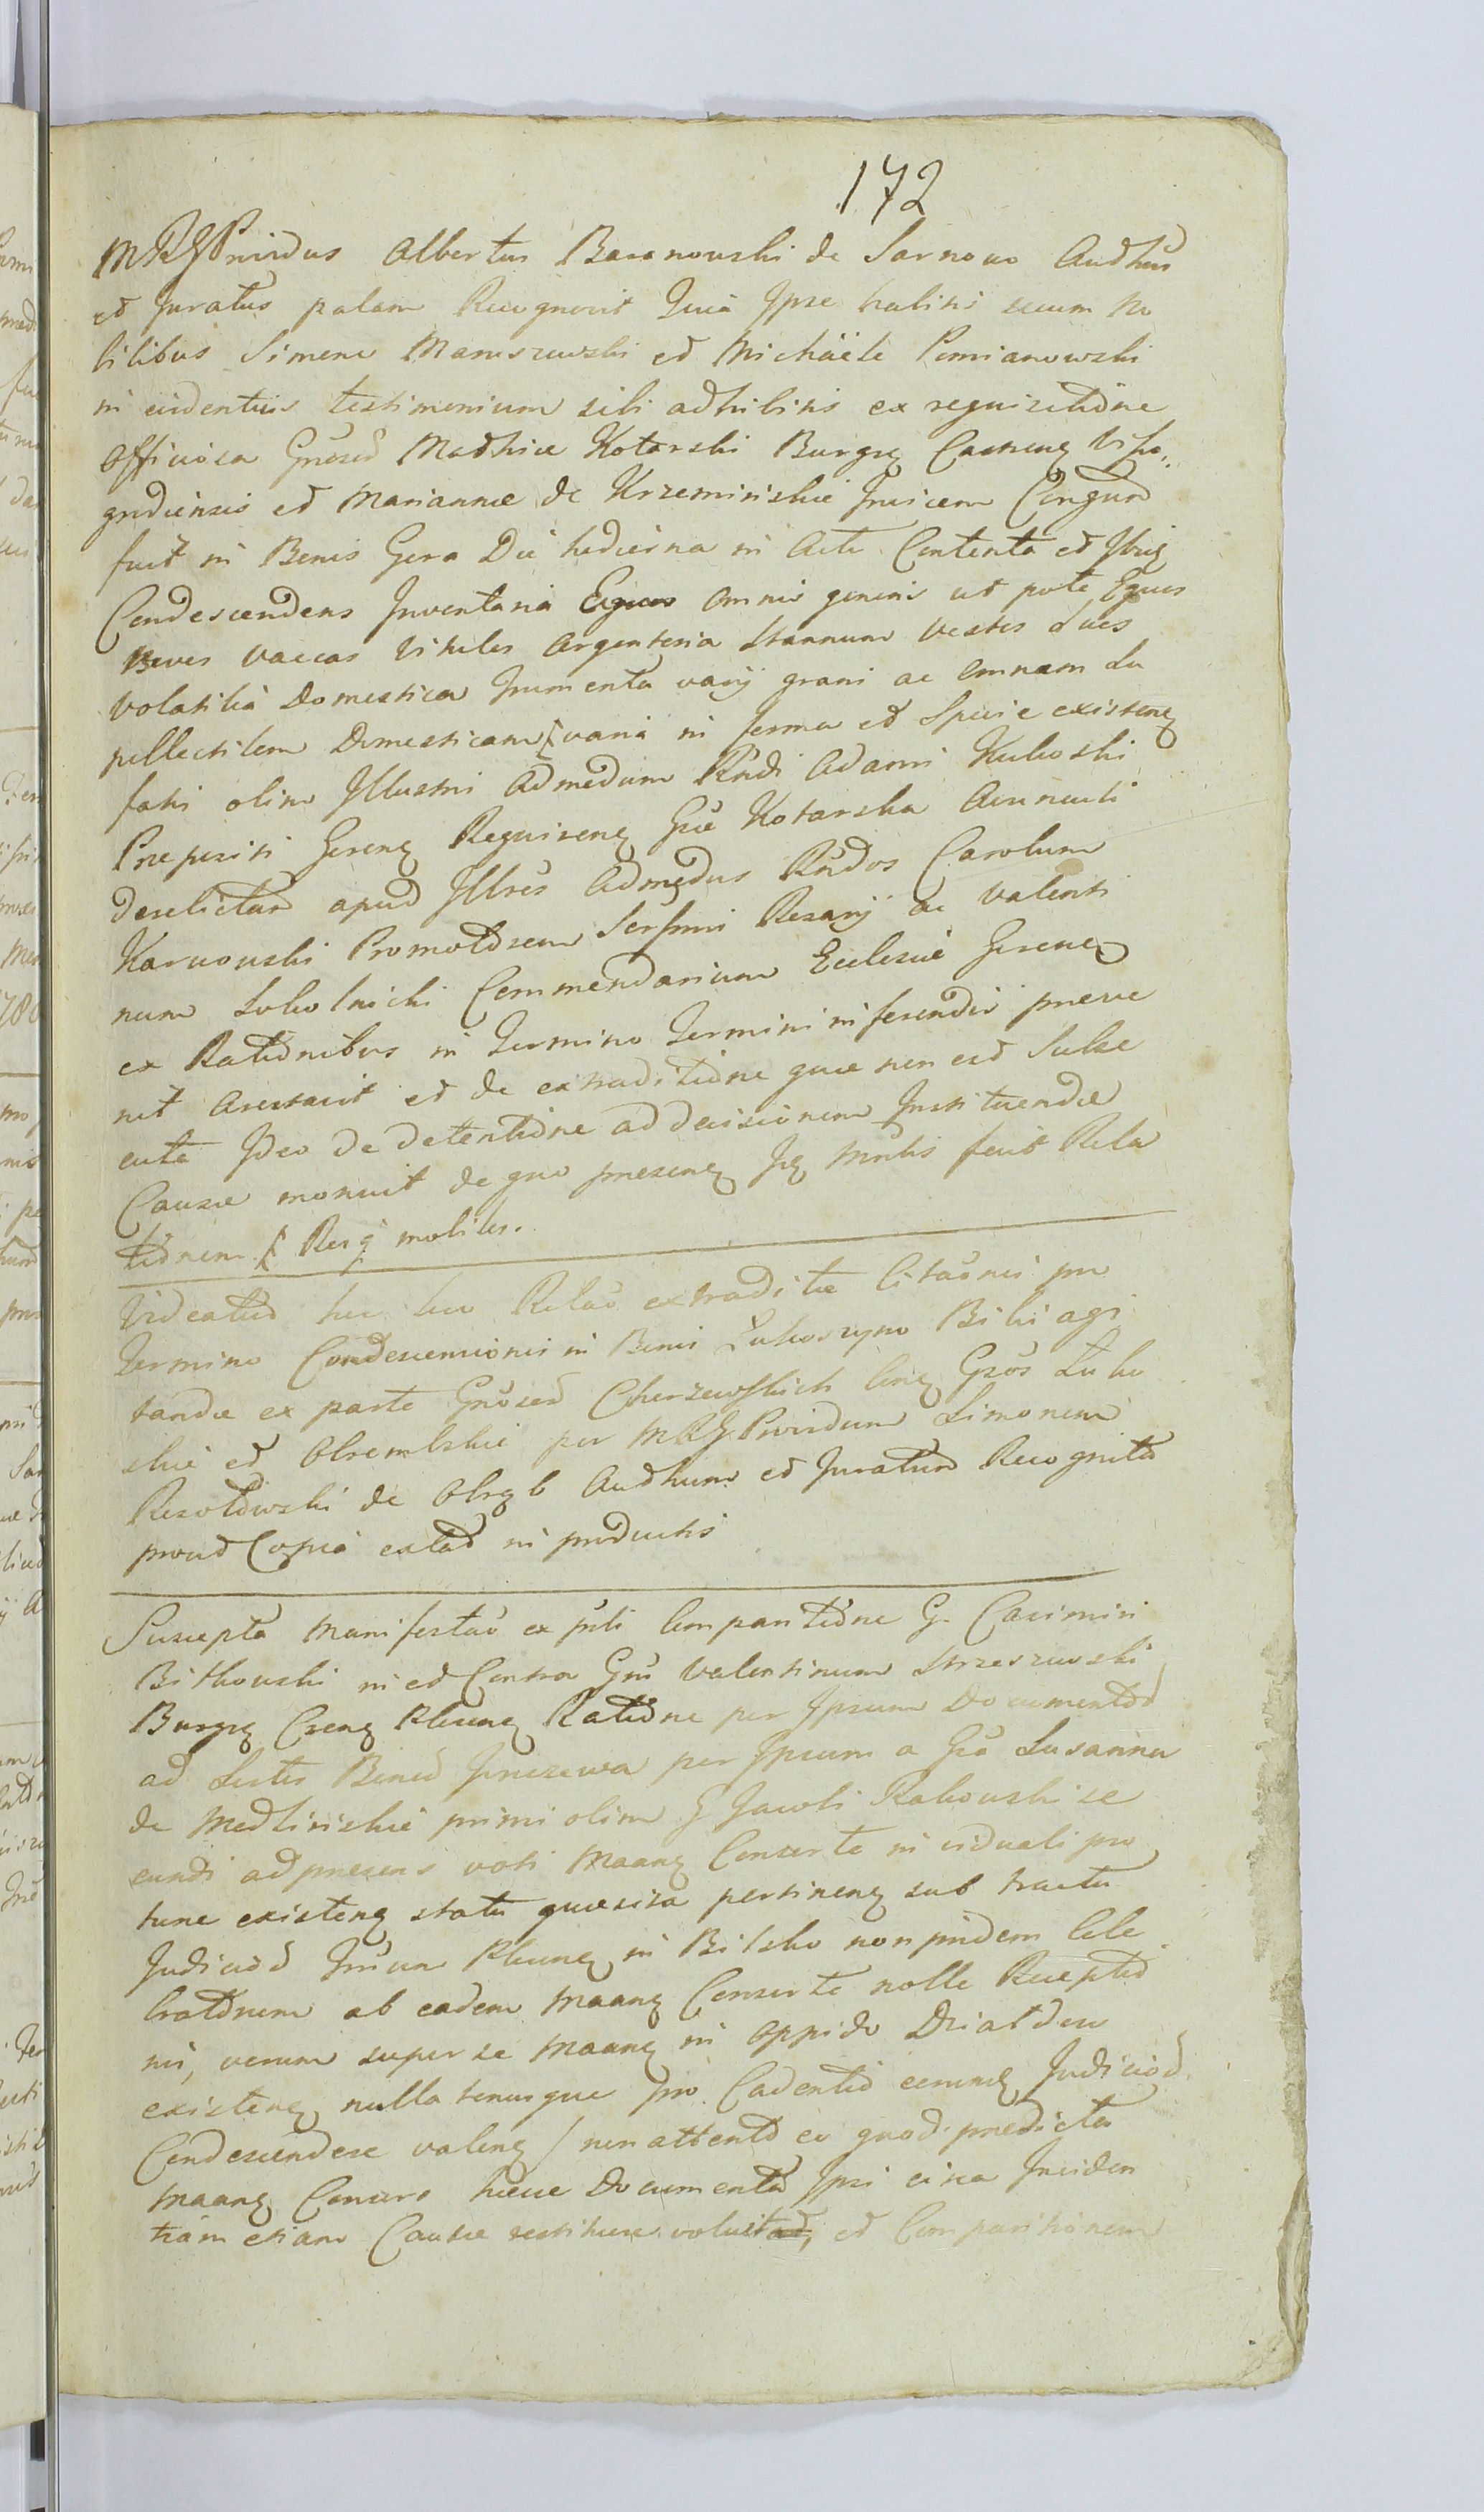 172
MRG Providus Albertus Baranowski de Sarnowo Authus
et Juratus palam Recognovit Quia Ipse habitis secum No
bilibus Simone Maruszewski et Michäele Pomianowski
in evidentius testimonium sibi adhibitis ex requisitione
officiosa Gnosed Mathiæ Kotarski Burgg Castreng Visso,,
grodiensis et Mariannæ de Krzeminskie Invicem Conjugum
fuit in Bonis Gora Die hodierna in Actu Contenta et Ibiq
Condescendens Inventaria omnis generis ut pote Equos
Boves Vaccas Vitulos Argenteria Stannum Vestes Oves
Volatilia Domestica Frumenta varij grani ac omnem Su
pellectilem Domesticam varia in forma et Specie existeng
fati olim Illustri Admodum Rndi Adami Kukoski
Præpositi Goreng Requireng Gæ Kotarska Avunculi
derelictam apud Illres Admodus Rndos Carolum
Karwowski Promotorem Ssrsmi Rosarij ac Valenti
num Sokolnicki Commendarium Ecclesiæ Goreng
ex Rationibus in Termino Termini inferendis præve
nit Arestavit et de extraditione quæ non est Subse
cuta Ideo de detentione ad decisionem Instituendæ
Causæ monuit de quo preseng Jg Mntis fecit Rela
tionem Resq mobiles.
Videatur huc loco Relao extraditæ Citaonis pro
Termino Condescensionis in Bonis Lukoszyno Biki agi
tandæ ex parte Gnosed Chorzewskich Cong Gsos Luko
skie et Obrembskie per MRG Providum Simonem
Rosolowski de Obreb Authum et Juratum Recognita
prout Copia extat in productis
Suscepta Manifestao ex psli Comparitione G. Casimiri
Bitkowski in et Contra Gnm Valentinum Strzeszewski
Burgg Creng Plocng Ratione per Ipsum Documentor
ad Sortes Bonod per Ipsum a Gsa Susanna
de Medlinskie primi olim G Jacobi Rakowski se
cundi ad præsens voti Maang Consorte in viduali pro
tunc existeng statu quæsita pertineng sub tractu
Judicior Plocng in Bilsko non pridem Cele
bratorum ab eadem Maang Consorte nolle Receptio
nis, verum super se Maang in oppido Dzialdow
existeng nullatenusque pro Cadentia eorumq Judicior
Condescendere valeng / non attento eo quod prædicta
Maang Consors hæcce Documenta Ipsi circa Inciden
tiam etiam Causæ restituere voluit et Comparitionem